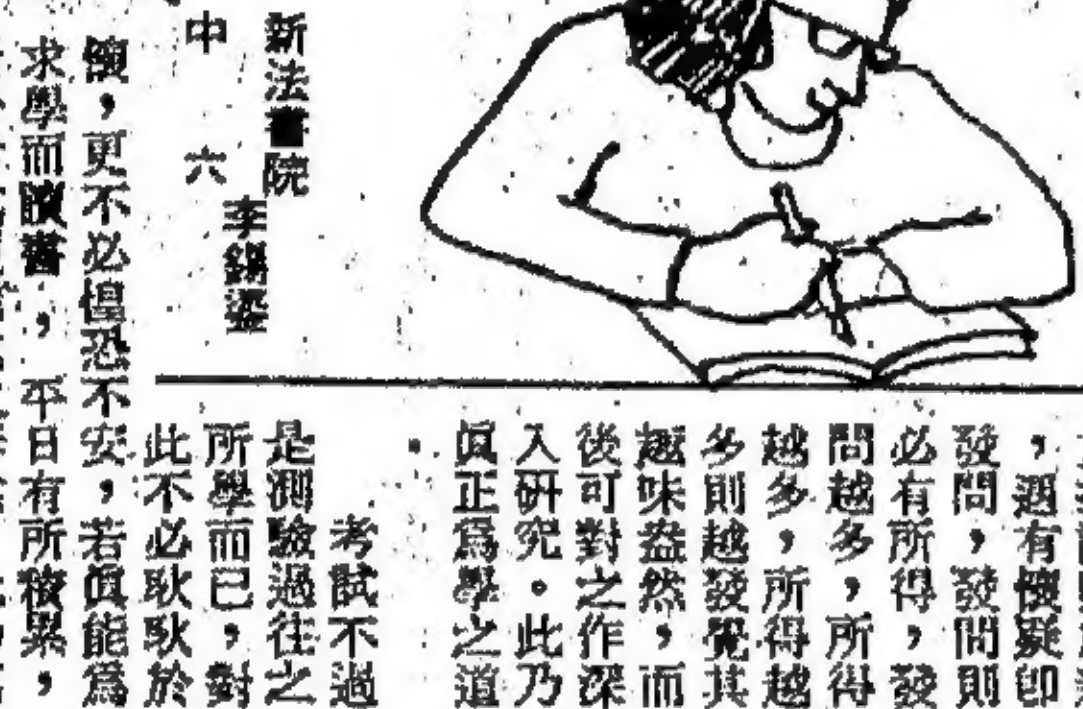 ，遇有懷疑卽
發問，發問則
必有所得，發
問越多，所得
越多，所得越
多則越發覺其
趣味盎然，而
後可對之作深
入研究。此乃
眞正爲學之道
。
考試不過
是測驗過往之
所學而已，對
此不必耿耿於
懷，更不必惶恐不安，若眞能爲
求學而讀書，平日有所積累，
新法書院
中六
李錫